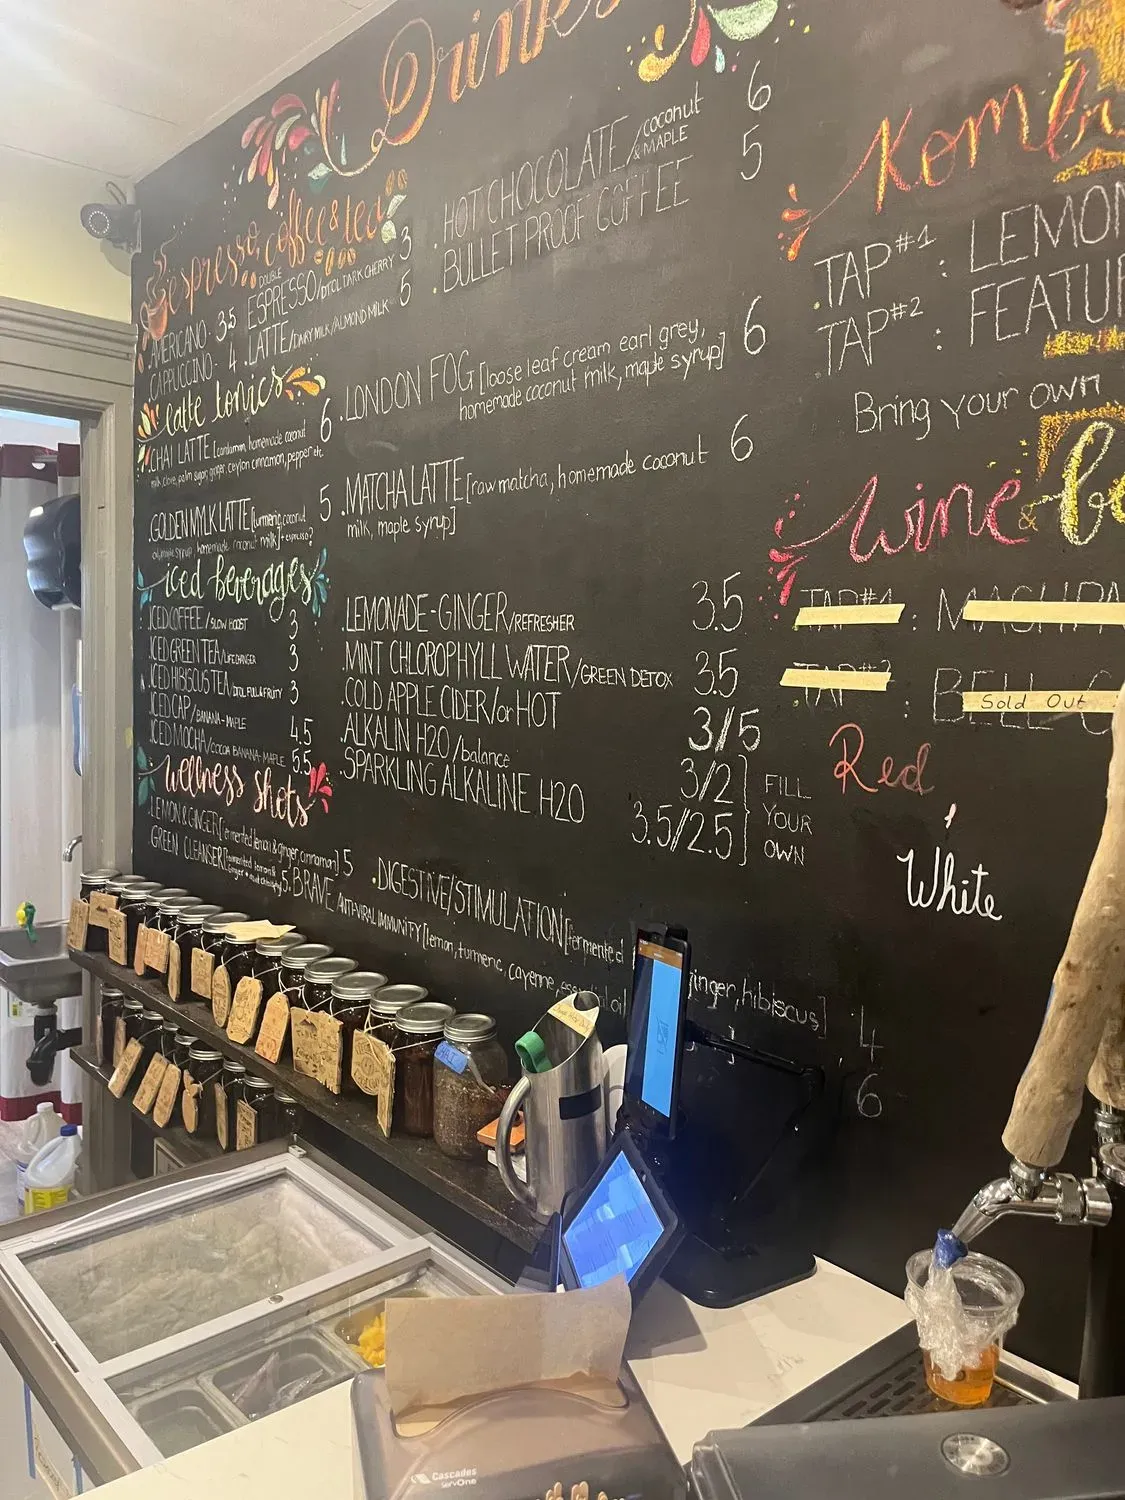 Drinks
espresso, coffee & tea
AMERICANO - 3.5
CAPPUCCINO - 4
DOUBLE
ESPRESSO/BTOL DARK CHERRY 3
.LATTE/DAIRY MILK/ALMOND MILK 5
.HOT CHOCOLATE/coconut & MAPLE 6
.BULLET PROOF COFFEE 5
latte tonics
.CHAI LATTE [cardamom, homemade coconut 6
milk, clove, palm sugar, ginger, ceylon cinnamon, pepper etc
.GOLDEN MYLK LATTE [turmeric, coconut 5
maple syrup, homemade coconut milk] + espresso?
.LONDON FOG [loose leaf cream earl grey, 6
homemade coconut milk, maple syrup]
.MATCHA LATTE [raw matcha, homemade coconut 6
milk, maple syrup]
iced beverages
.ICED COFFEE/SLOW ROAST 3
.ICED GREEN TEA/LIFE CHANGER 3
.ICED HIBISCUS TEA/BTOL FULL & FRUITY 3
.ICED CAP/BANANA-MAPLE 4.5
.ICED MOCHA/COCOA BANANA-MAPLE 5.5
.LEMONADE-GINGER/REFRESHER 3.5
.MINT CHLOROPHYLL WATER/GREEN DETOX 3.5
.COLD APPLE CIDER/or HOT 3/5
.ALKALIN H2O/balance 3/2
.SPARKLING ALKALINE H2O 3.5/2.5
FILL
YOUR
OWN
wellness shots
.LEMON & GINGER [fermented lemon & ginger, cinnamon] 5
.GREEN CLEANSER 5
.DIGESTIVE/STIMULATION [fermented
ginger, hibiscus] 4
.BRAVE/ANTI-VIRAL IMMUNITY [lemon, turmeric, cayenne, essential oil
6
Komb
.TAP #1 : LEMON
.TAP #2 : FEATU
Bring your own
wine & be
TAP #1 : MASHPA
TAP #2 : BELL-
Sold Out
Red
White
Cascades
ServOne